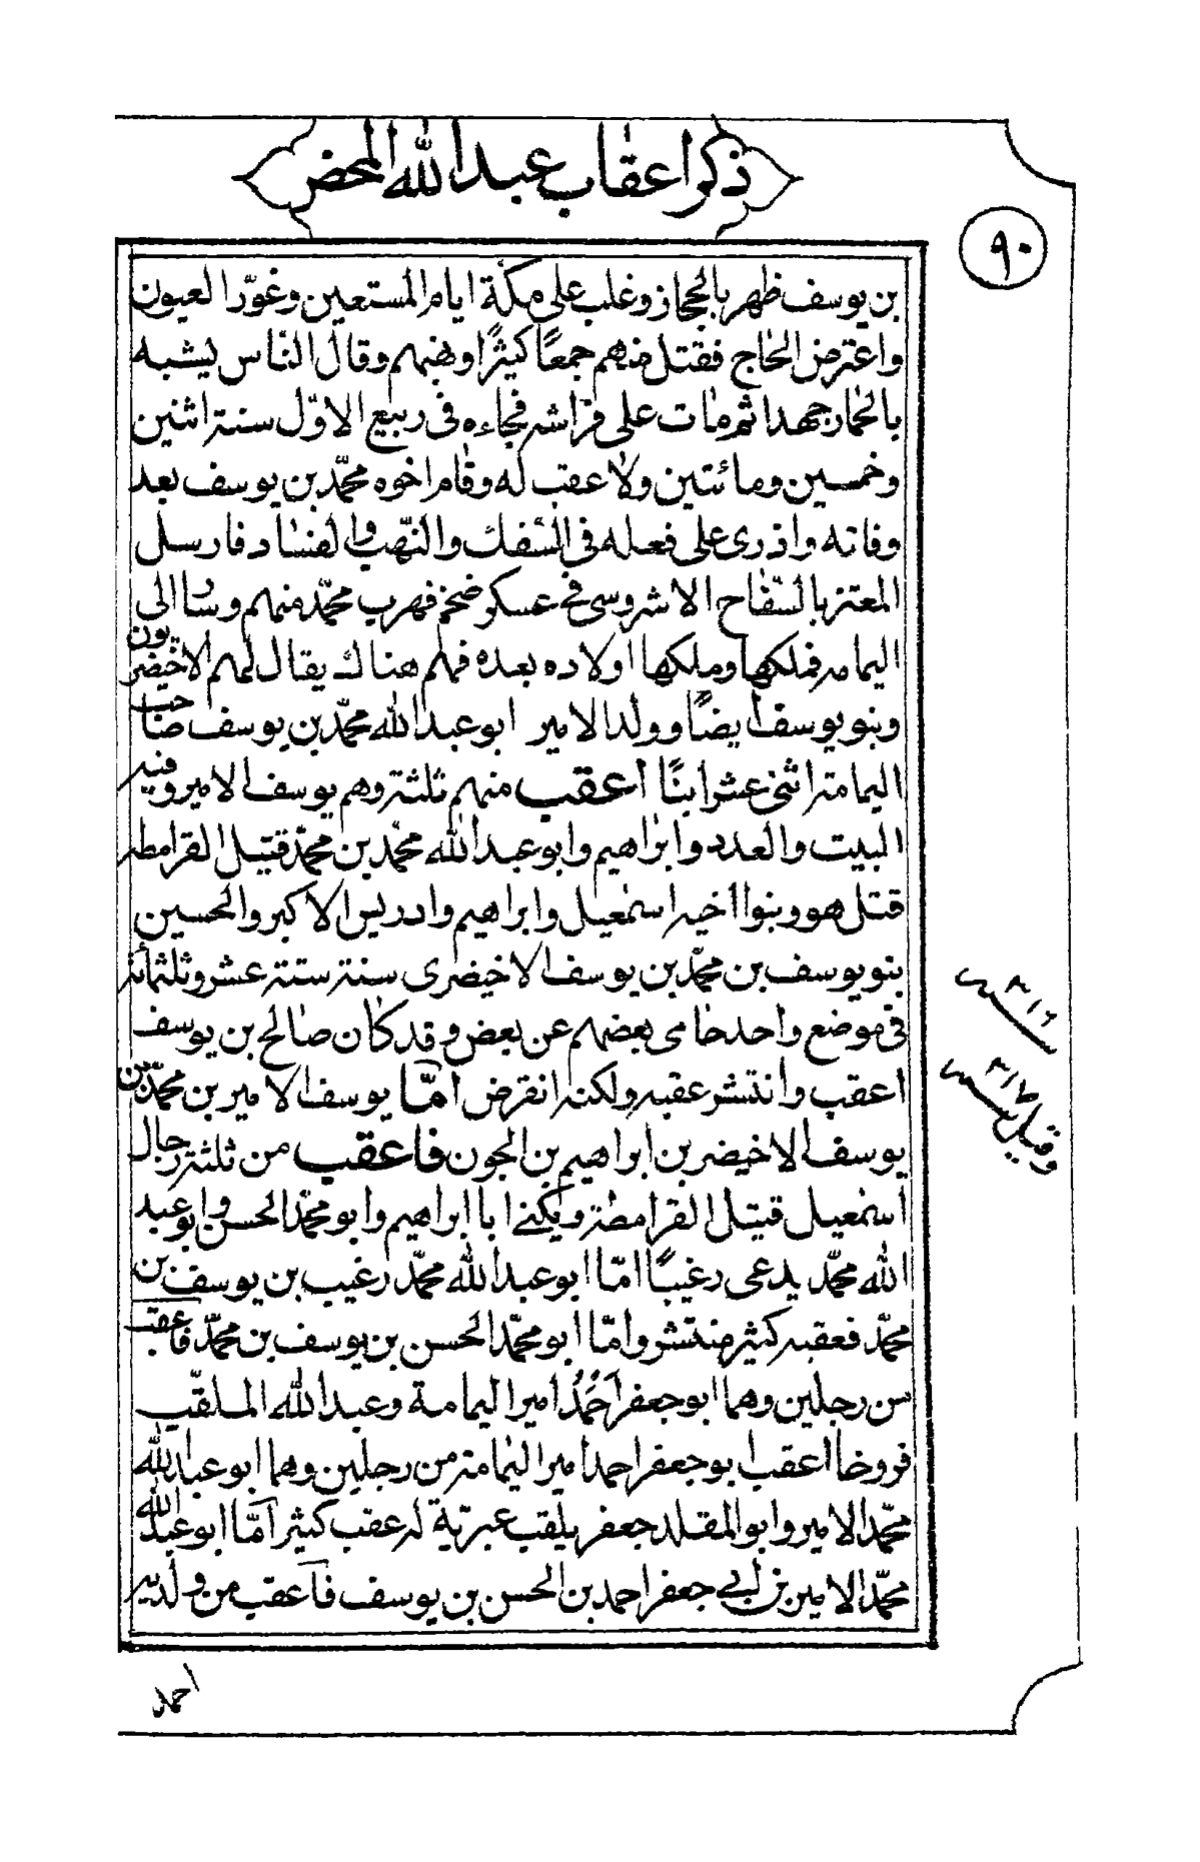 ذكر اعقاب عبد الله المحض
٩٠
بن يوسف ظهر بالحجاز وغلب على مكّة ايام المستعين وغوّر العيون
واعترض الحاج فقتل منهم جمعًا كثيرًا ونهبهم وقال النّاس يشبه
بالحمار جهدا ثم مات على فراشه فجاءه فى ربيع الاوّل سنة اثنين
وخمسين ومائتين ولا عقب له وقام اخوه محمّد بن يوسف بعد
وفاته واذرى على فعله فى السّفك والنّهب والفساد فارسل
المعتز بالسّفاح الاشروسى فى عسكر ضخم فهرب محمّد منهم وسار الى
اليمامه فملكها وملكها اولاده بعده فهم هناك يقال لهم الاخيضريون
وبنو يوسف ايضًا وولد الامير ابو عبد الله محمّد بن يوسف صاحب
اليمامة اثنى عشر ابنًا اعقب منهم ثلثة وهم يوسف الامير وفيه
البيت والعدد وابراهيم وابو عبد الله محمّد بن محمّد قتيل القرامطه
قتل هو وبنوا اخيه اسمعيل وابراهيم وادريس الاكبر والحسين
بنو يوسف بن محمّد بن يوسف الاخيضرى سنة ستة عشر وثلثمائة
فى موضع واحد حامى بعضهم عن بعض وقد كان صالح بن يوسف
اعقب وانتشر عقبه ولكنه انقرض امّا يوسف الامير بن محمّد بن
يوسف الاخيضر بن ابراهيم بن الجون فاعقب من ثلثة رجال
اسمعيل قتيل القرامطة ويكنى ابا ابراهيم وابو محمّد الحسن وابو عبد
الله محمّد يدعى رغيبًا امّا ابو عبد الله محمّد رغيب بن يوسف بن
محمّد فعقبه كثير منتشر وامّا ابو محمّد الحسن بن يوسف بن محمّد فاعقب
من رجلين وهما ابو جعفر احمد امير اليمامة وعبد الله الملقّب
فروخا اعقب ابو جعفر احمد امير اليمامة من رجلين وهما ابو عبد الله
محمّد الامير وابو المقلد جعفر يلقب عبريّة له عقب كثير امّا ابو عبد الله
محمّد الامير بن ابى جعفر احمد بن الحسن بن يوسف فاعقب من ولديه
احمد
٣١٦ سنه
وقيل سنه ٣١٧